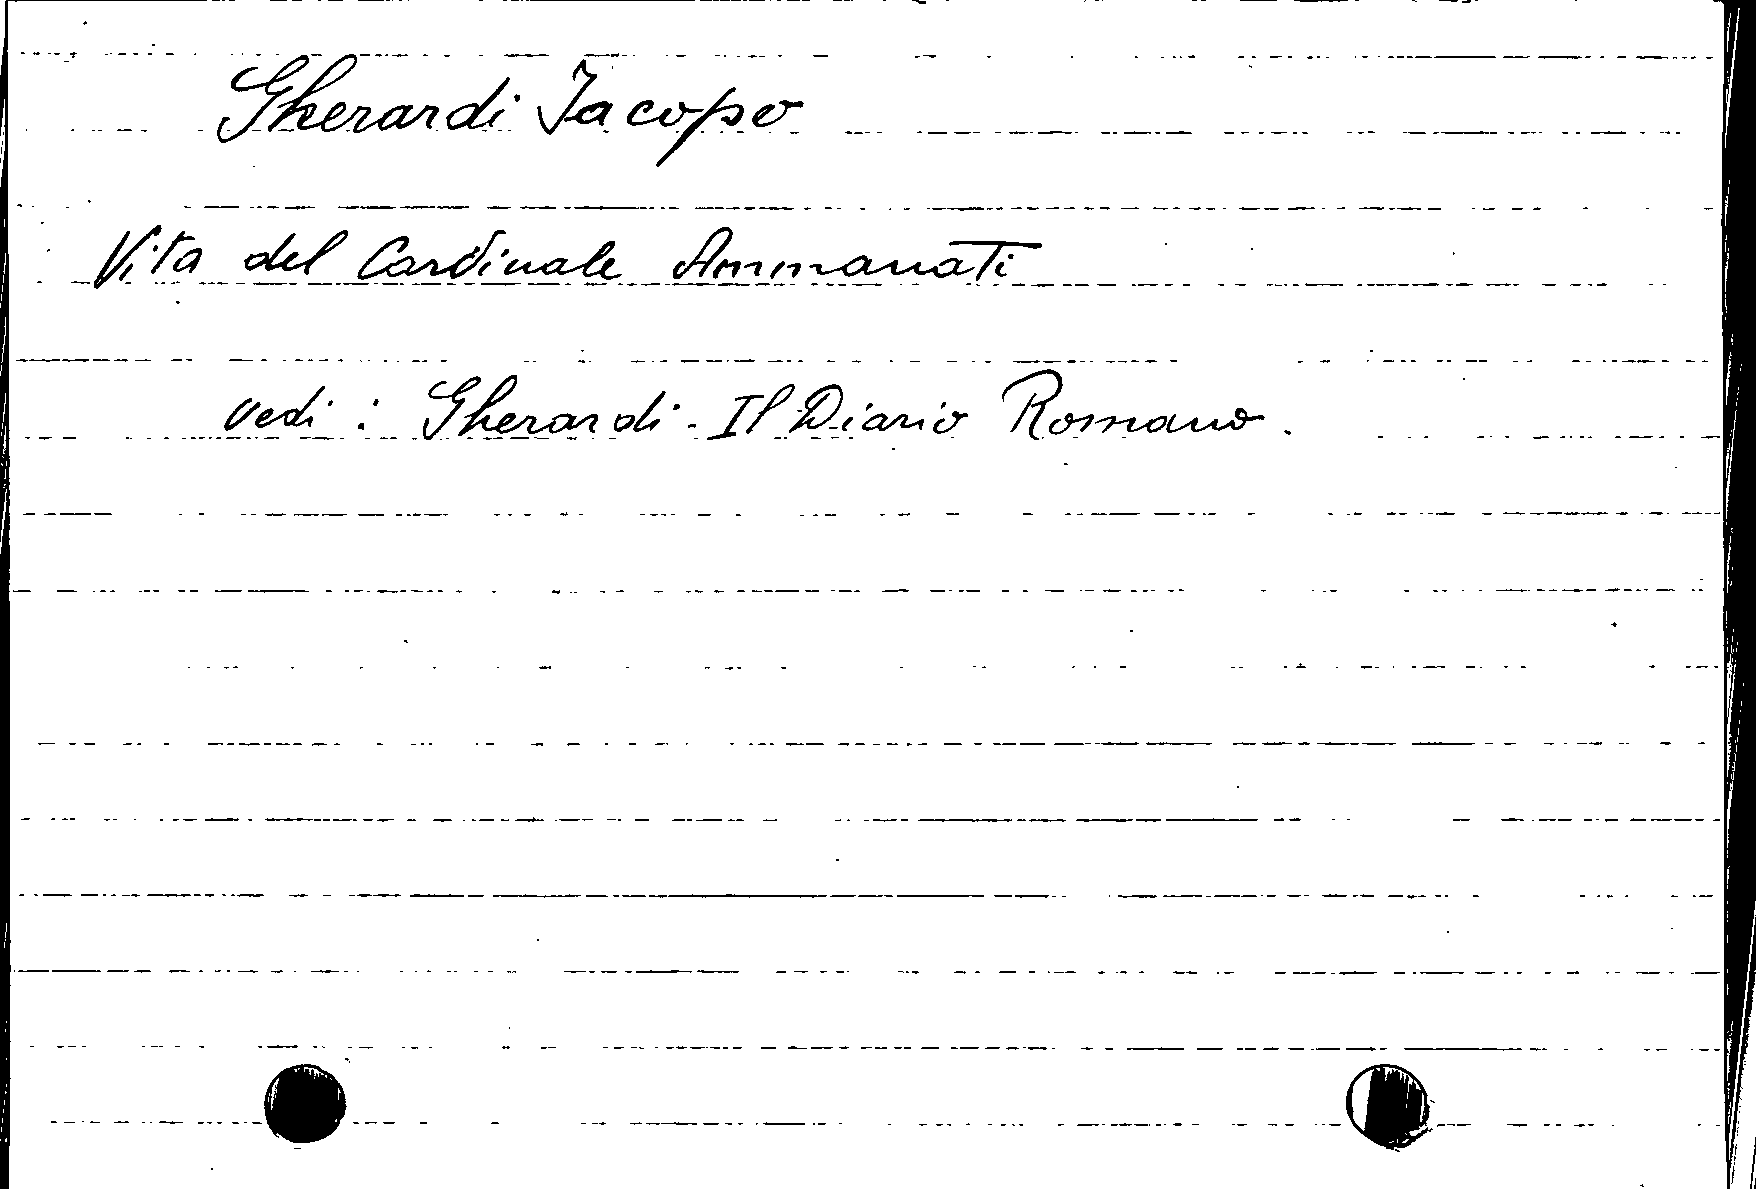 Gherardi Jacopo
Vita del Cardinale Ammanati
vedi : Gherardi - Il Diario Romano.